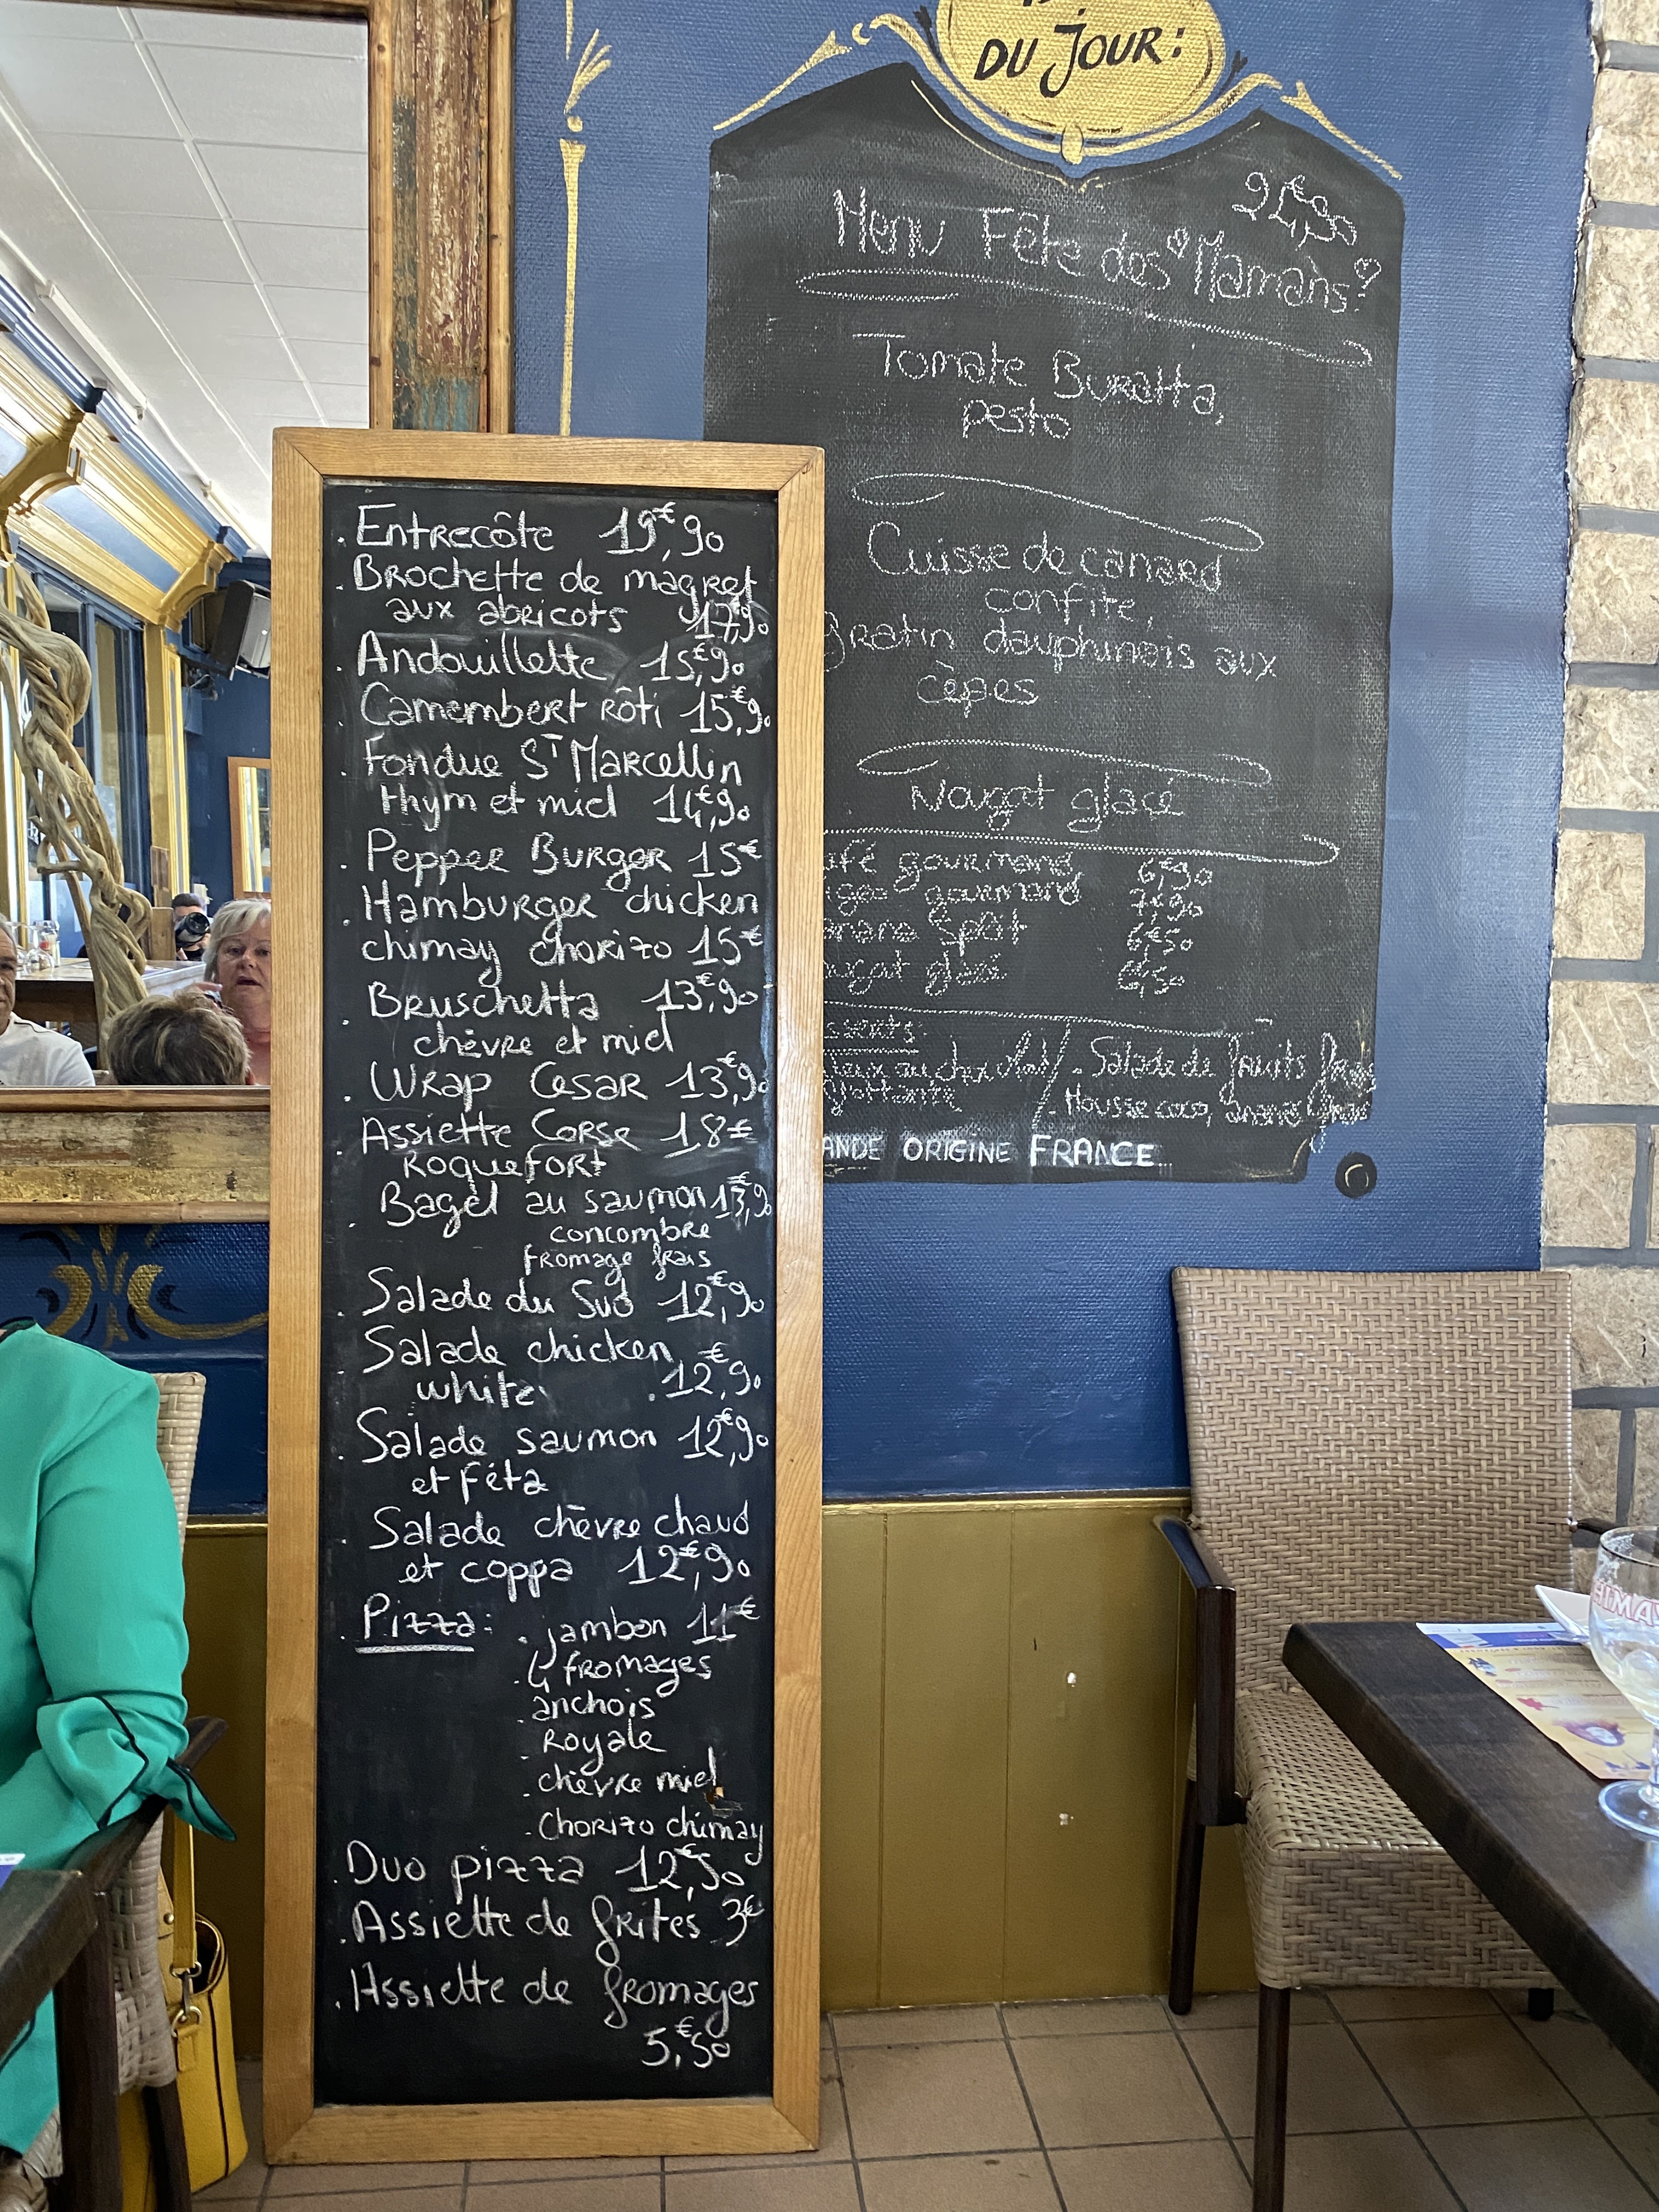 . Entrecôte 19€,90
. Brochette de magret
aux abricots 17,90
. Andouillette 15€,90
. Camembert rôti 15€,90
. Fondue St Marcellin
thym et miel 14€,90
. Pepper Burger 15€
. Hamburger chicken
chimay chorizo 15€
. Bruschetta 13€,90
chèvre et miel
. Wrap Cesar 13€,90
. Assiette Corse 18€
Roquefort
. Bagel au saumon 13€,90
concombre
fromage frais
. Salade du Sud 12€,90
. Salade chicken
white 12€,90
. Salade saumon 12€,90
et féta
. Salade chèvre chaud
et coppa 12€,90
. Pizza: . jambon 11€
. 4 fromages
. anchois
. Royale
. chèvre miel
. Chorizo chimay
. Duo pizza 12€,50
. Assiette de frites 3€
. Assiette de fromages
5€,50
DU JOUR:
Menu Fête des Mamans
Tomate Buratta,
pesto
Cuisse de canard
confite,
gratin dauphinois aux
cèpes
Nougat glacé
gourmand 6€,90
gourmand 7€,90
Split 6€,50
glacé 6€,50
au chocolat / . Salade de fruits
. Mousse coco, ananas
ANDE ORIGINE FRANCE